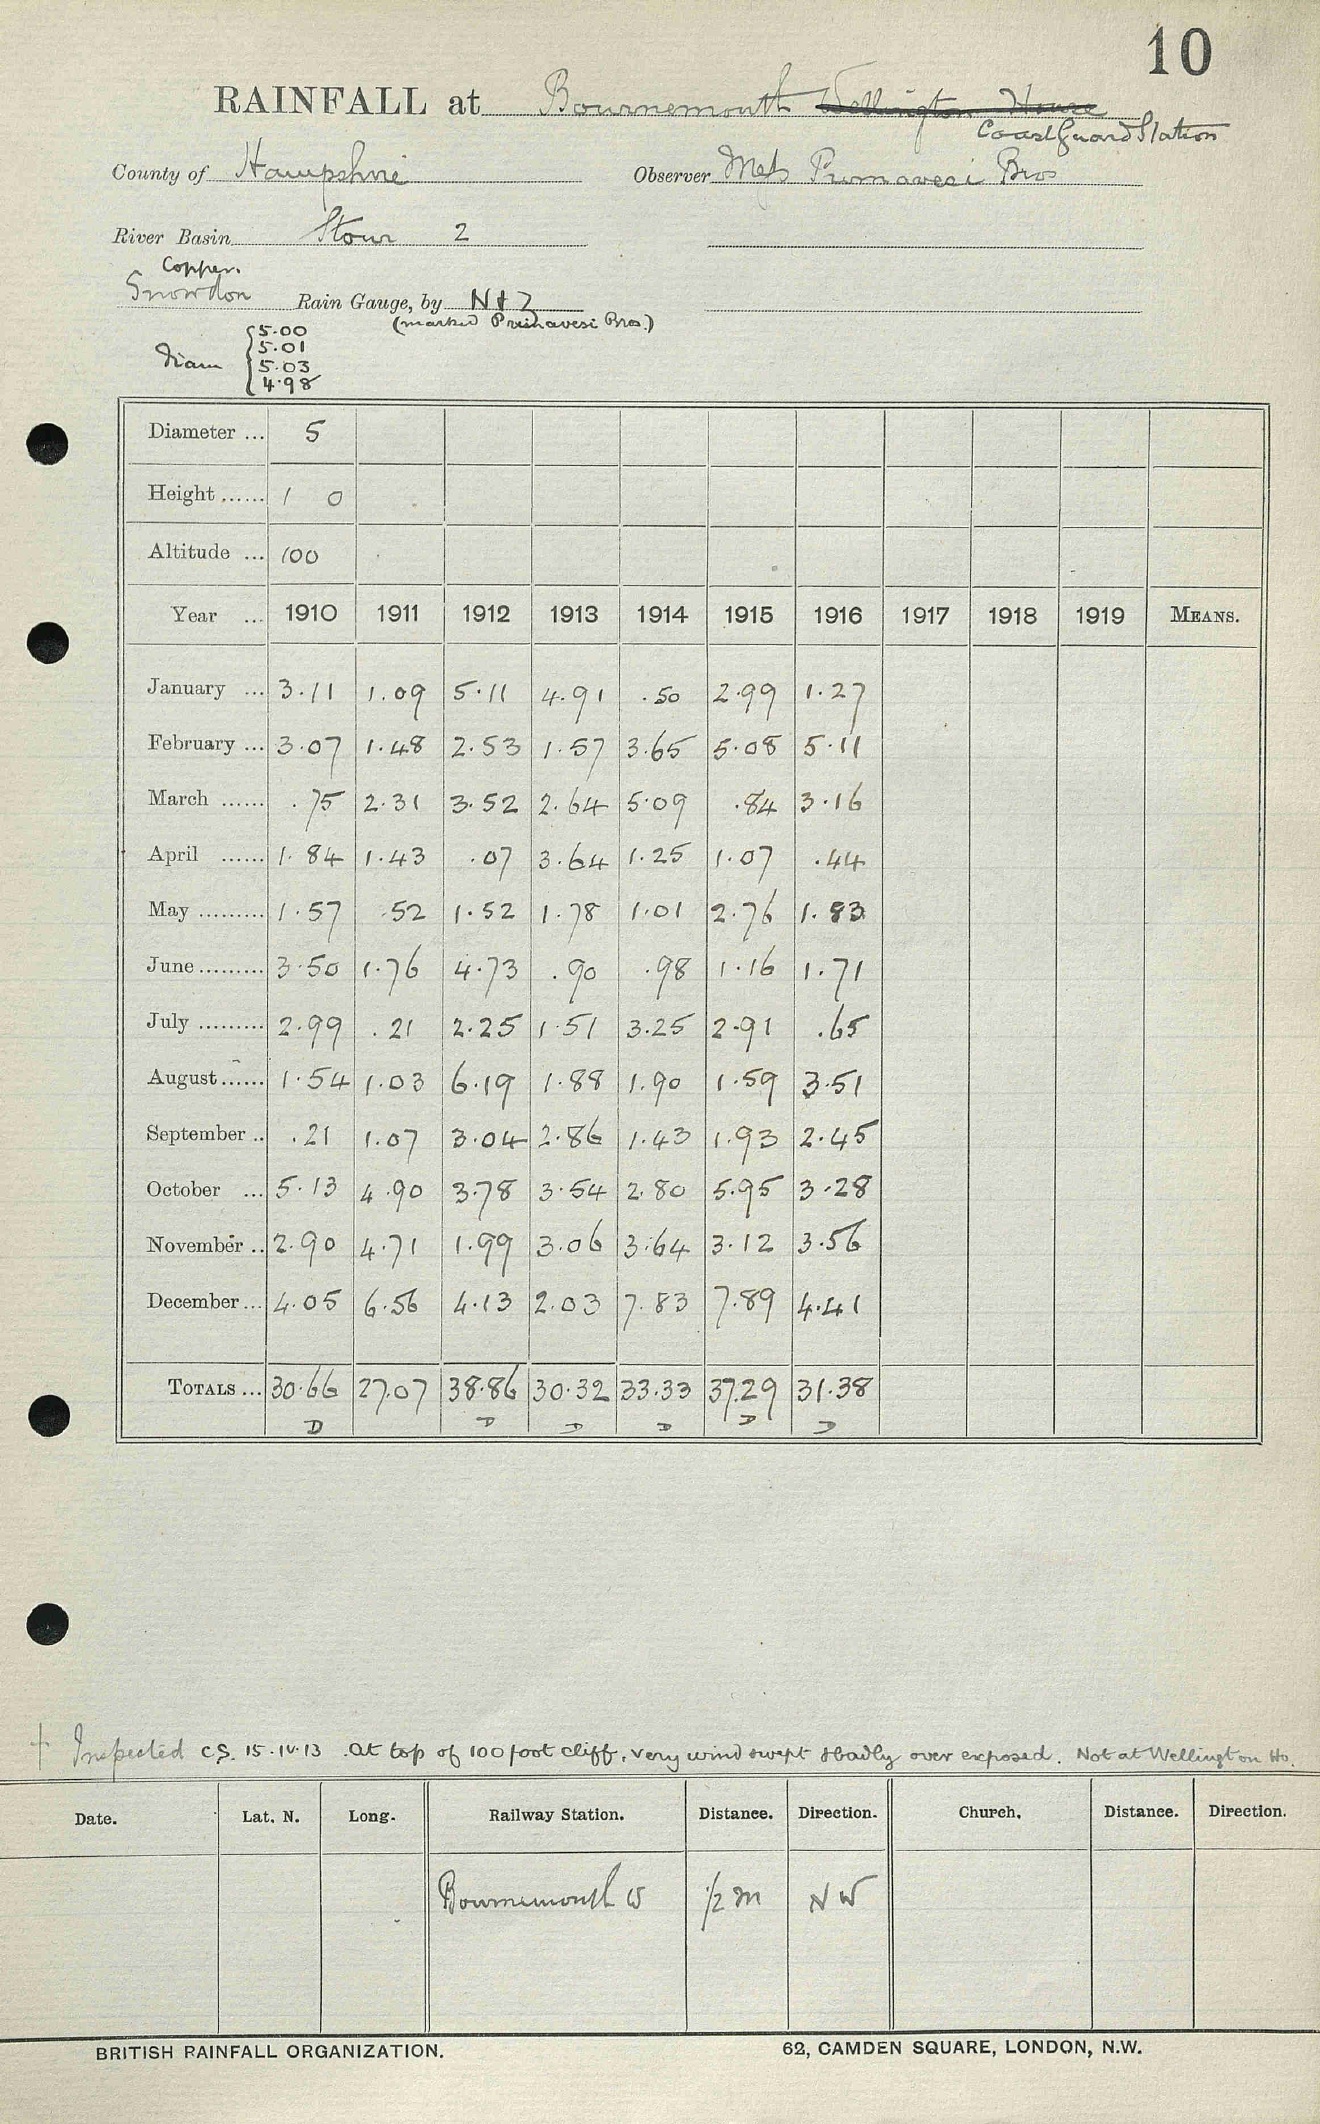 10
RAINFALL at Bournemouth Wellington House
Coast Guard Station
County of Hampshire Observer Mess Primavesi Bros
River Basin Stour 2
Copper.
Snowdon Rain Gauge, by N & Z
(marked Primavesi Bros.)
Diam { 5.00
5.01
5.03
4.98
Diameter ... 5
Height ...... 1 0
Altitude ... 100
Year ... 1910 1911 1912 1913 1914 1915 1916 1917 1918 1919 MEANS.
January ... 3.11 1.09 5.11 4.91 .50 2.99 1.27
February ... 3.07 1.48 2.53 1.57 3.65 5.08 5.11
March ...... .75 2.31 3.52 2.64 5.09 .84 3.16
April ...... 1.84 1.43 .07 3.64 1.25 1.07 .44
May ......... 1.57 .52 1.52 1.78 1.01 2.76 1.83
June ......... 3.50 1.76 4.73 .90 .98 1.16 1.71
July ......... 2.99 .21 2.25 1.51 3.25 2.91 .65
August ...... 1.54 1.03 6.19 1.88 1.90 1.59 3.51
September .. .21 1.07 3.04 2.86 1.43 1.93 2.45
October ... 5.13 4.90 3.78 3.54 2.80 5.95 3.28
November .. 2.90 4.71 1.99 3.06 3.64 3.12 3.56
December ... 4.05 6.56 4.13 2.03 7.83 7.89 4.41
TOTALS ... 30.66 27.07 38.86 30.32 33.33 37.29 31.38
D D D D D D
† Inspected C.S. 15.IV.13 . At top of 100 foot cliff, very wind swept & badly over exposed. Not at Wellington Ho.
Date. Lat. N. Long. Railway Station. Distance. Direction. Church. Distance. Direction.
Bournemouth W 1/2 m NW
BRITISH RAINFALL ORGANIZATION. 62, CAMDEN SQUARE, LONDON, N.W.